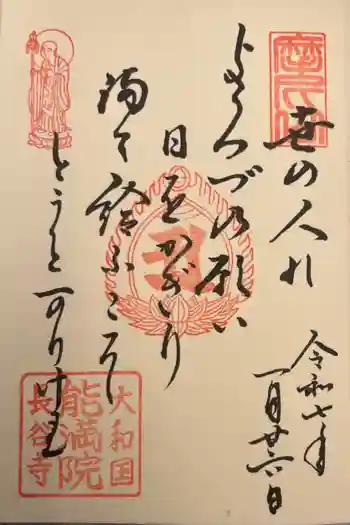 世の人れ
よろづの願い
日をかぎり
満て給ふところ
とうとかりけれ
令和七年
一月廿六日
大和国
長谷寺
能満院